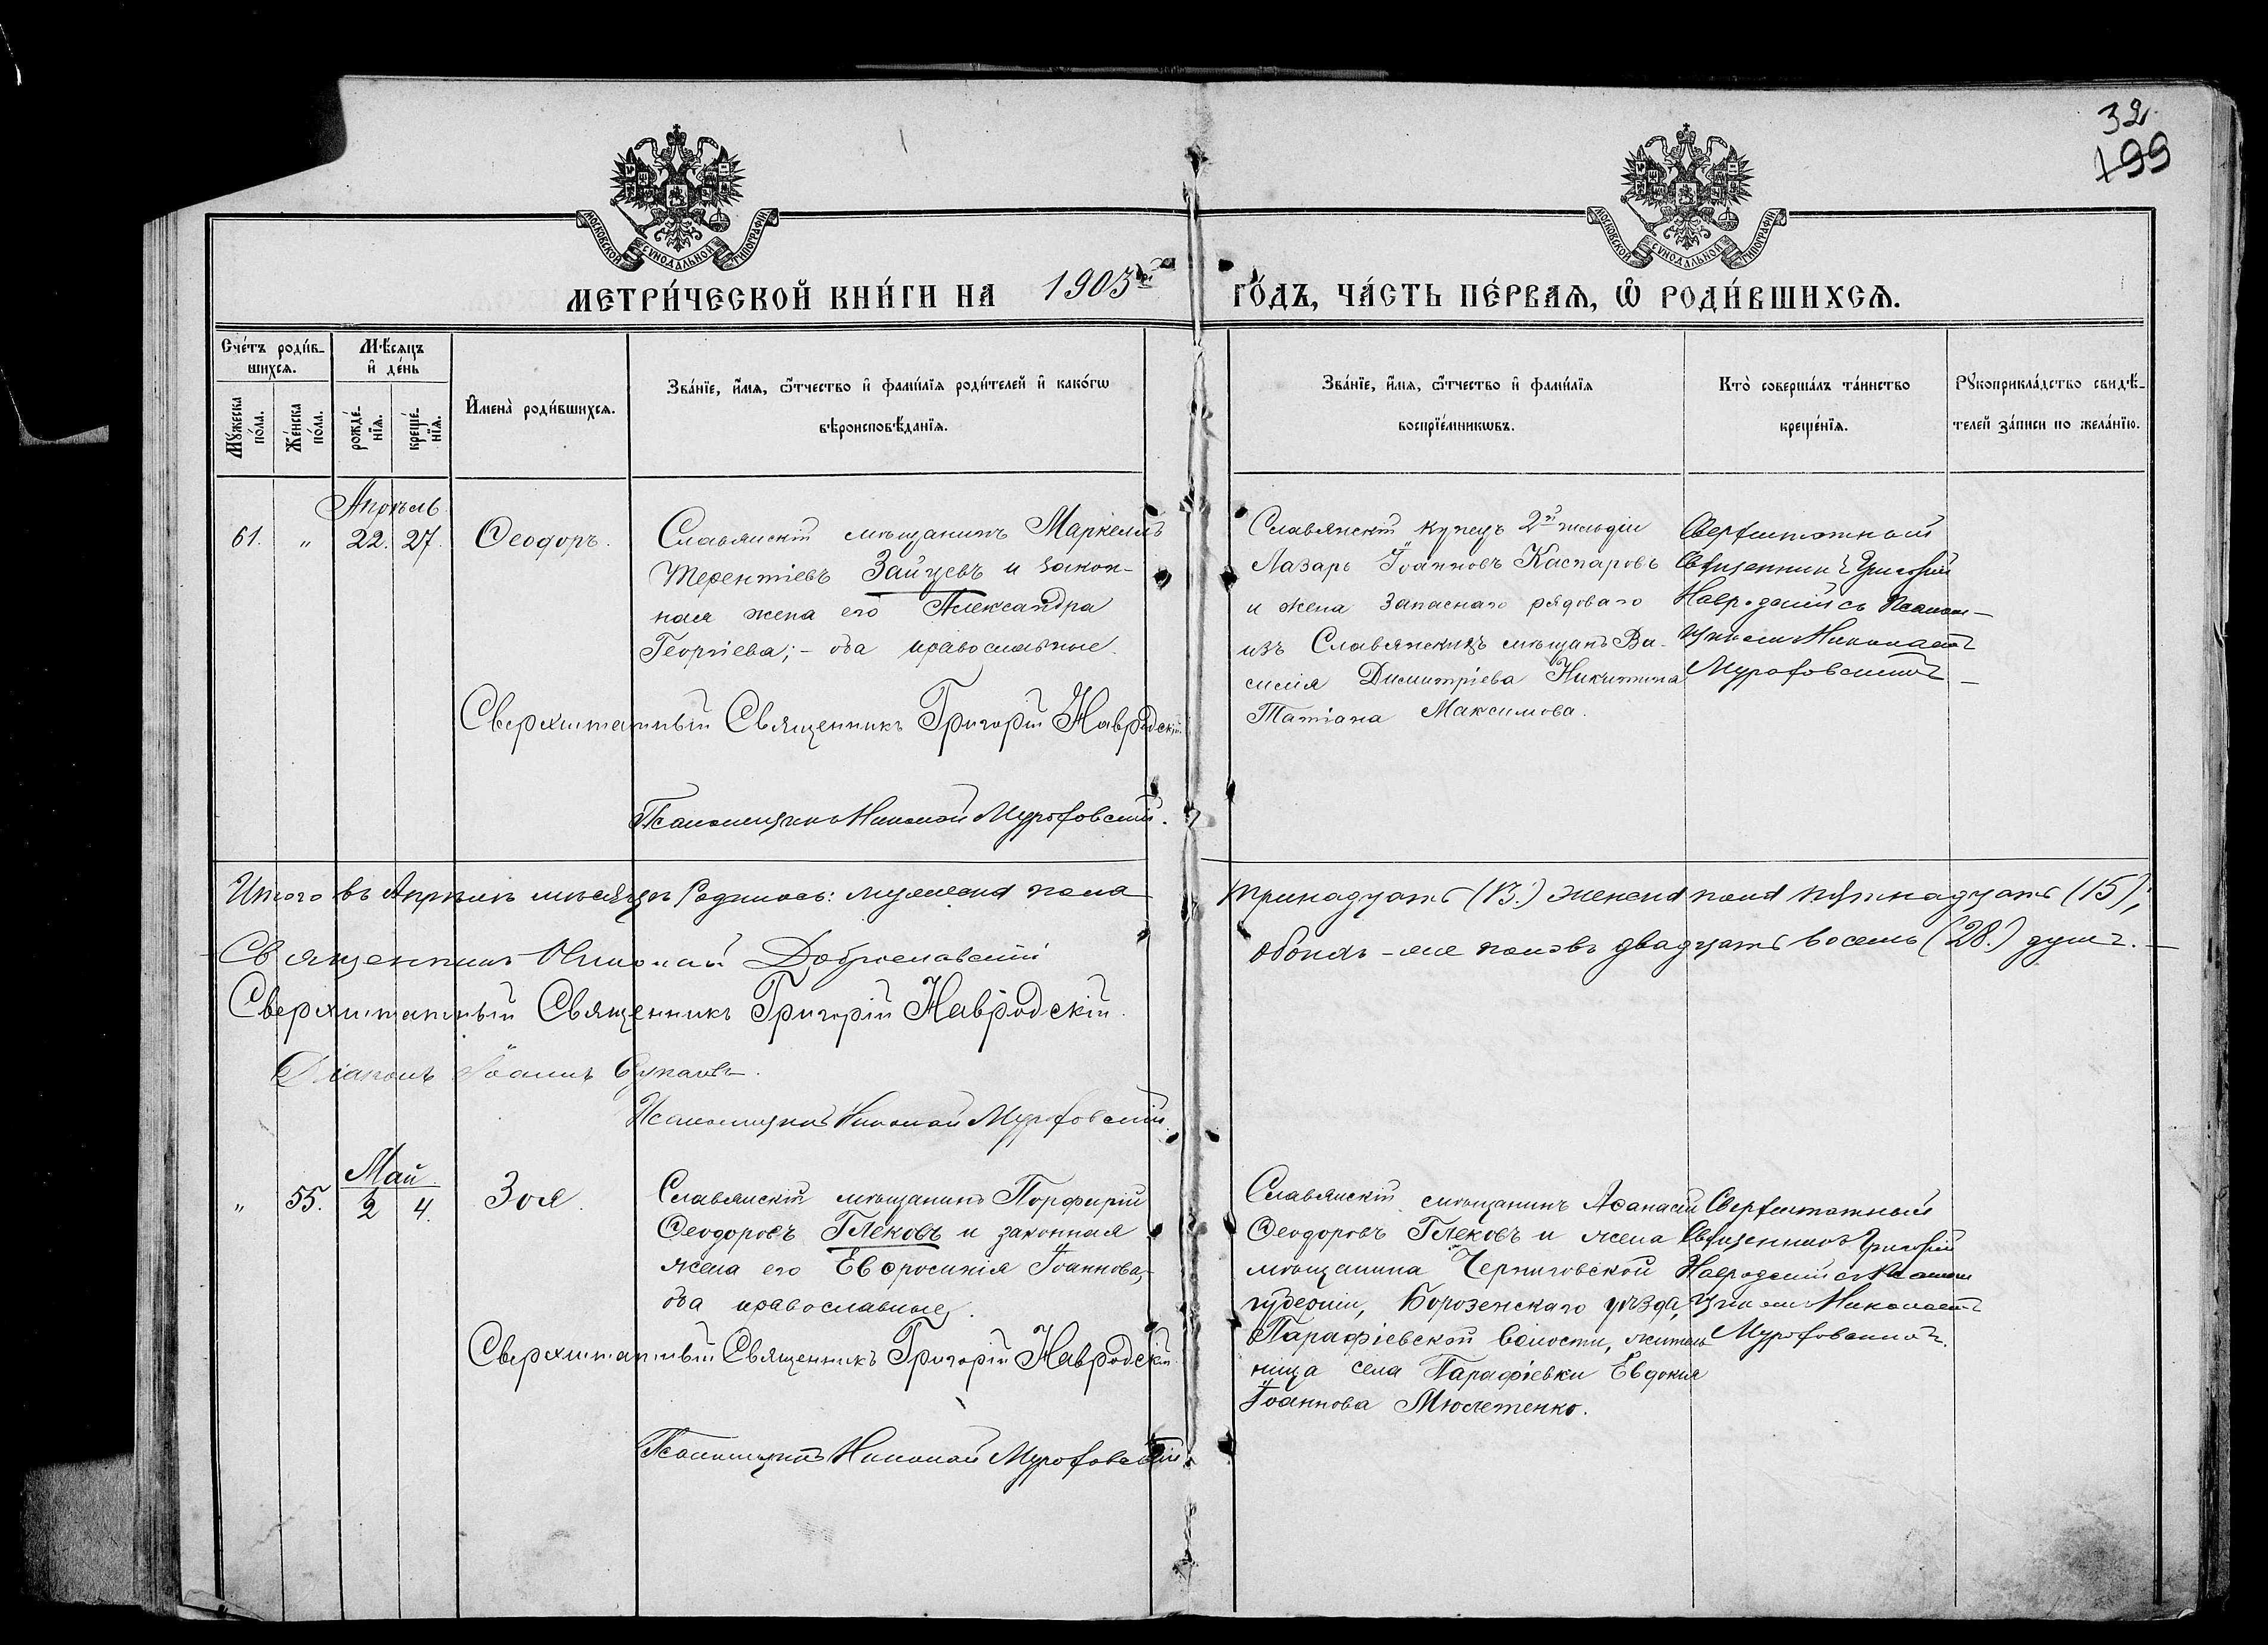 32.
199
МОСКОВСКОЙ СУНОДАЛЬНОЙ ТИПОГРАФІИ
МОСКОВСКОЙ СУНОДАЛЬНОЙ ТИПОГРАФІИ
МЕТРИ́ЧЕСКОЙ КНИ́ГИ НА 1903й ГО́ДЪ, ЧА́СТЬ ПЕ́РВАѦ, Ѿ РОДИ́ВШИХСѦ.
Сче́тъ роди́вшихсѧ.
Мѣ́сѧцъ и҆ де́нь
Мꙋ́жеска по́ла.
Же́нска по́ла.
рожде́нїѧ.
креще́нїѧ.
И҆мена̀ роди́вшихсѧ.
Зва́нїе, и҆́мѧ, ѻ҆́тчество и҆ фами́лїѧ роди́телей и҆ како́гѡ
вѣроисповѣ́данїѧ.
Зва́нїе, и҆́мѧ, ѻ҆́тчество и҆ фами́лїѧ
воспрїе́мникѡвъ.
Кто̀ соверша́лъ та́инство
креще́нїѧ.
Рꙋкоприкла́дство свидѣ́-
телей за́писи по жела́нїю.
Апрѣль
61. " 22. 27. Ѳеодоръ.
Славянскій мѣщанинъ Маркеллъ
Терентіевъ Зайцевъ и закон-
ная жена его Александра
Георгіева; - оба православные.
Славянскій купецъ 2й гильдіи
Лазарь Іоанновъ Каспаровъ
и жена запаснаго рядоваго
изъ Славянскихъ мѣщанъ Ва-
силія Димитріева Никитина
Татіана Максимова.
Сверхштатный
Священникъ Григорій
Навродскій съ Псалом-
щикомъ Николаемъ
Мурофовскимъ
Сверхштатный Священникъ Григорій Навродскій
Псаломщикъ Николай Мурофовскій.
Итого въ Апрѣлѣ мѣсяцѣ родилось: мужеска пола тринадцать (13.) женска пола пятнадцать (15),
обоихъ-же половъ двадцать восемь (28.) душъ.
Священникъ Николай Доброславскій
Сверхштатный Священникъ Григорій Навродскій.
Діаконъ Іоаннъ
Псаломщикъ Николай Мурофовскій.
Май
" 55. 2 4. Зоя.
Славянскій мѣщанинъ Порфирій
Ѳеодоровъ Глековъ и законная
жена его Евфросинія Іоаннова,
оба православные.
Славянскій мѣщанинъ Аѳанасій
Ѳеодоровъ Глековъ и жена
мѣщанина Черниговской
губерніи, Борозенскаго уѣзда,
Парафіевской волости, житель
ница села Парафіевки Евдокія
Іоаннова Мюлетенко.
Сверхштатный
Священникъ Григорій
Навродскій съ Псалом
щикомъ Николаемъ
Мурофовскимъ.
Сверхштатный Священникъ Григорій Навродскій
Псаломщикъ Николай Мурофовскій.